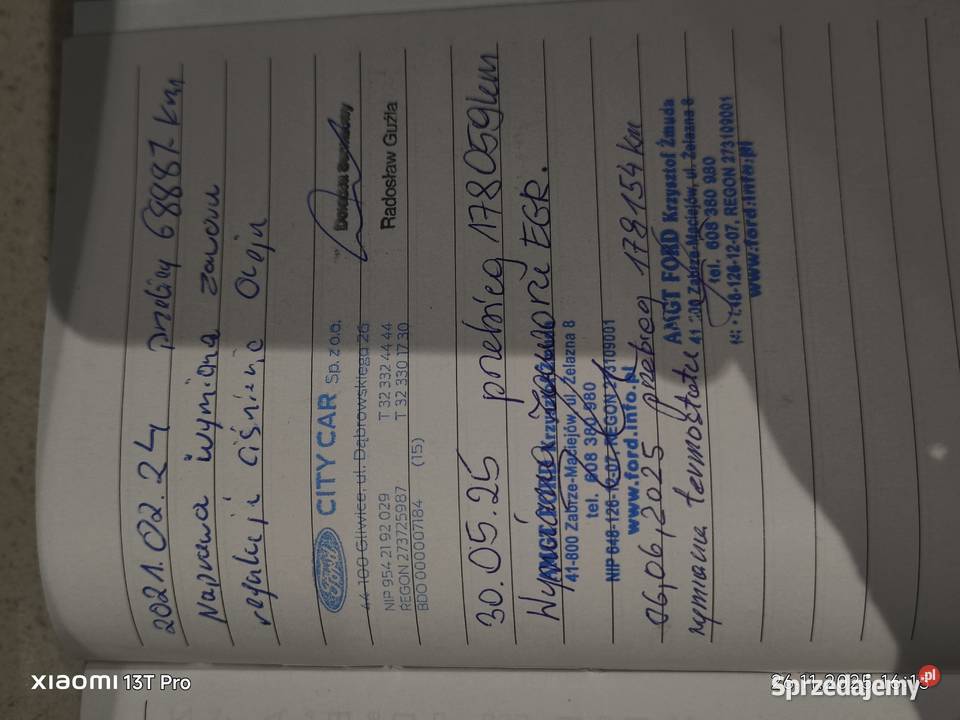 2021.02.24 przebieg 68887 km
Naprawa wymiana zaworu
regulacji ciśnienie oleju
Ford CITY CAR Sp. z o.o.
44-100 Gliwice, ul. Dąbrowskiego 26
NIP 954 21 92 029 T 32 332 44 44
REGON 273725987 T 32 330 17 30
BDO 000007184 (15)
Radosław Guzla
30.05.25 przebieg 178059 km
Wymiana zaworu EGR.
AMGT FORD Krzysztof
41-800 Zabrze-Maciejów ul. Żelazna 8
tel. 608 380 980
NIP 648-126-12-07, REGON 273109001
www.ford.info.pl
06,06,2025 przebieg 178154 km
wymiana termostatu
AMGT FORD Krzysztof Żmuda
41-800 Zabrze-Maciejów, ul. Żelazna 8
tel. 608 380 980
648-126-12-07, REGON 273109001
www.ford.info.pl
XIAOMI 13T Pro
26.11.2025 16:18
Sprzedajemy.pl